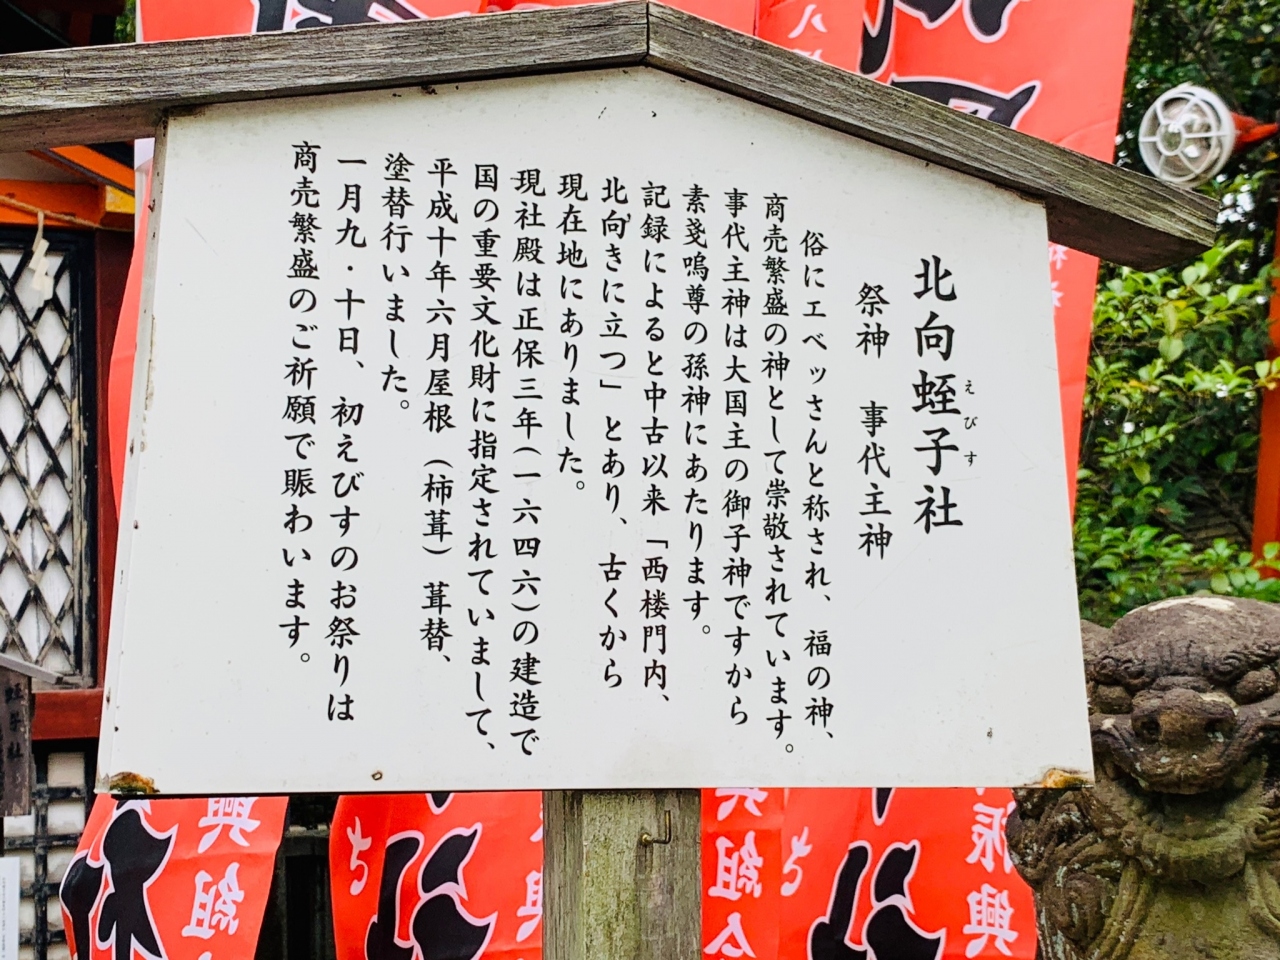 北向蛭子社
えびす
祭神　事代主神
俗にエベッさんと称され、福の神、
商売繁盛の神として崇敬されています。
事代主神は大国主の御子神ですから
素戔嗚尊の孫神にあたります。
記録によると中古以来「西楼門内、
北向きに立つ」とあり、古くから
現在地にありました。
現社殿は正保三年(一六四六)の建造で
国の重要文化財に指定されていまして、
平成十年六月屋根（柿葺）葺替、
塗替行いました。
一月九・十日、初えびすのお祭りは
商売繁盛のご祈願で賑わいます。
興組
ち
興組合
ち
振興